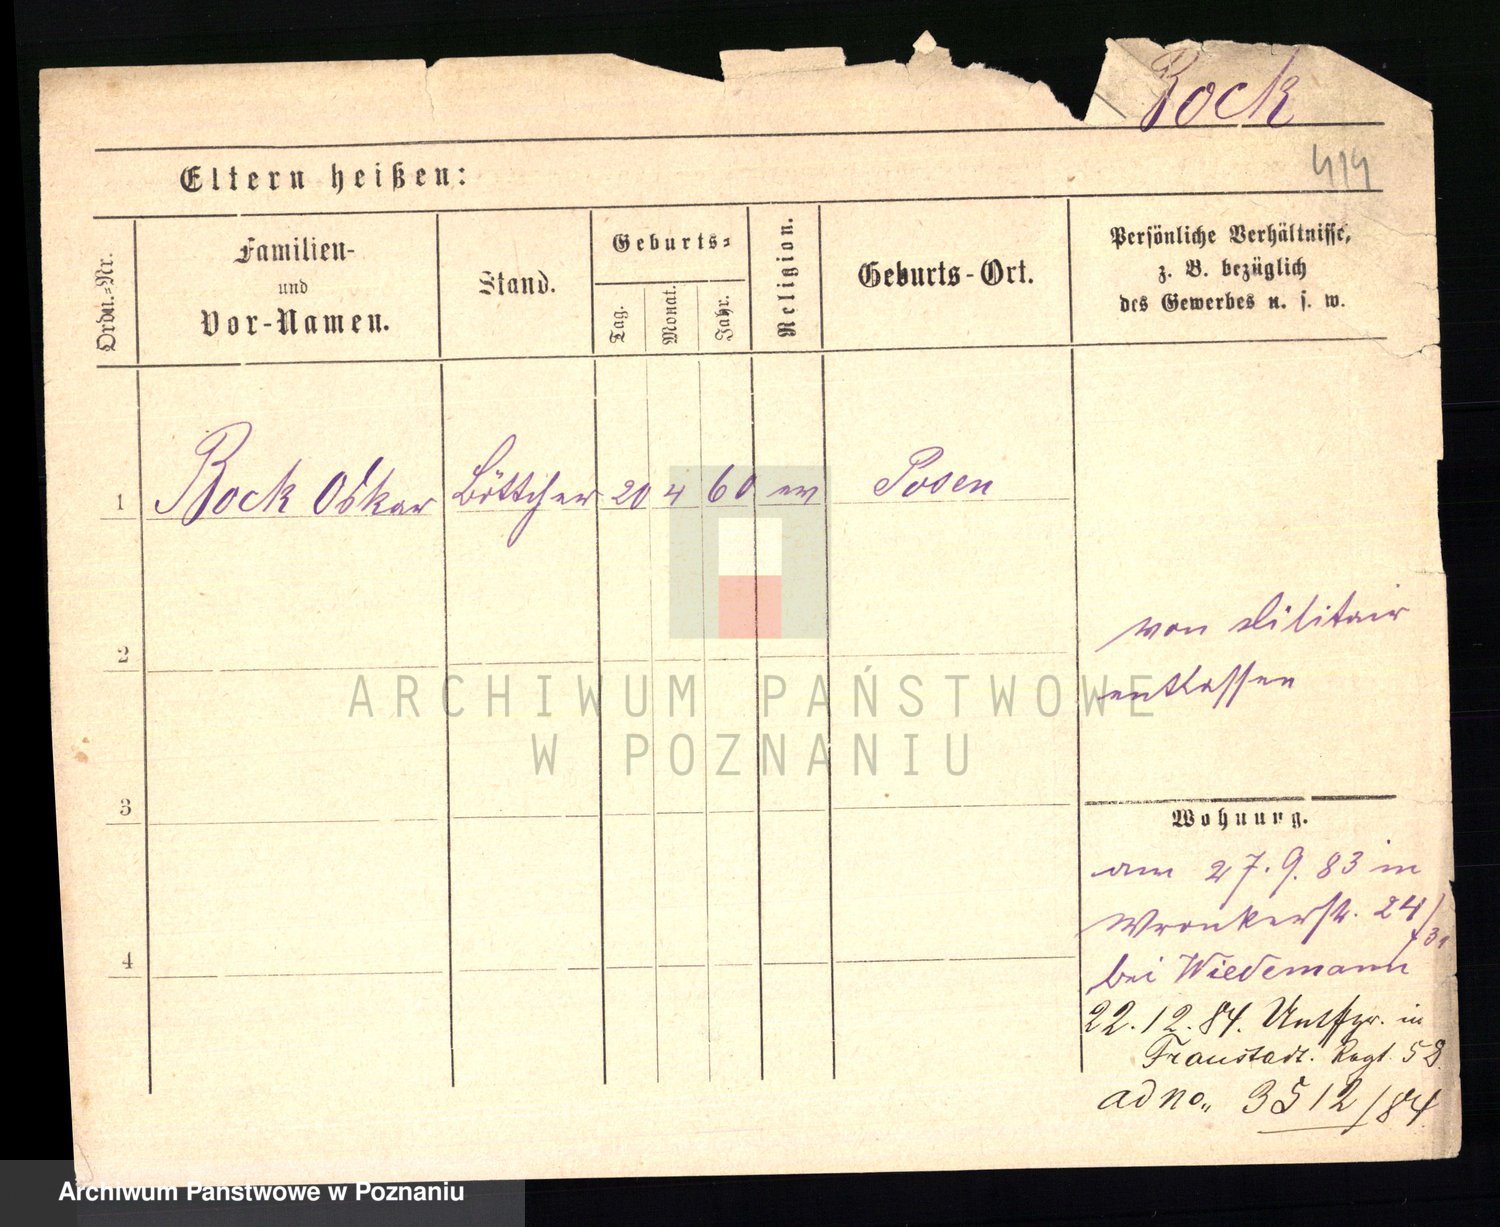 Bock
414
Eltern heißen:
Ordn.-Nr.
Familien-
und
Vor-Namen.
Stand.
Geburts-
Tag.
Monat.
Jahr.
Religion.
Geburts-Ort.
Persönliche Verhältnisse,
z. B. bezüglich
des Gewerbes u. s. w.
1 Bock Oskar Böttcher 20 4 60 ev Posen
2
von Militair
entlassen
ARCHIWUM PAŃSTWOWE
W POZNANIU
3
Wohnung.
am 27.9.83 in
Wronkerstr. 24/
bei Wiedemann
4
22.12.84. in
Fraustadt. Regt. 58.
ad no. 3512/84.
Archiwum Państwowe w Poznaniu